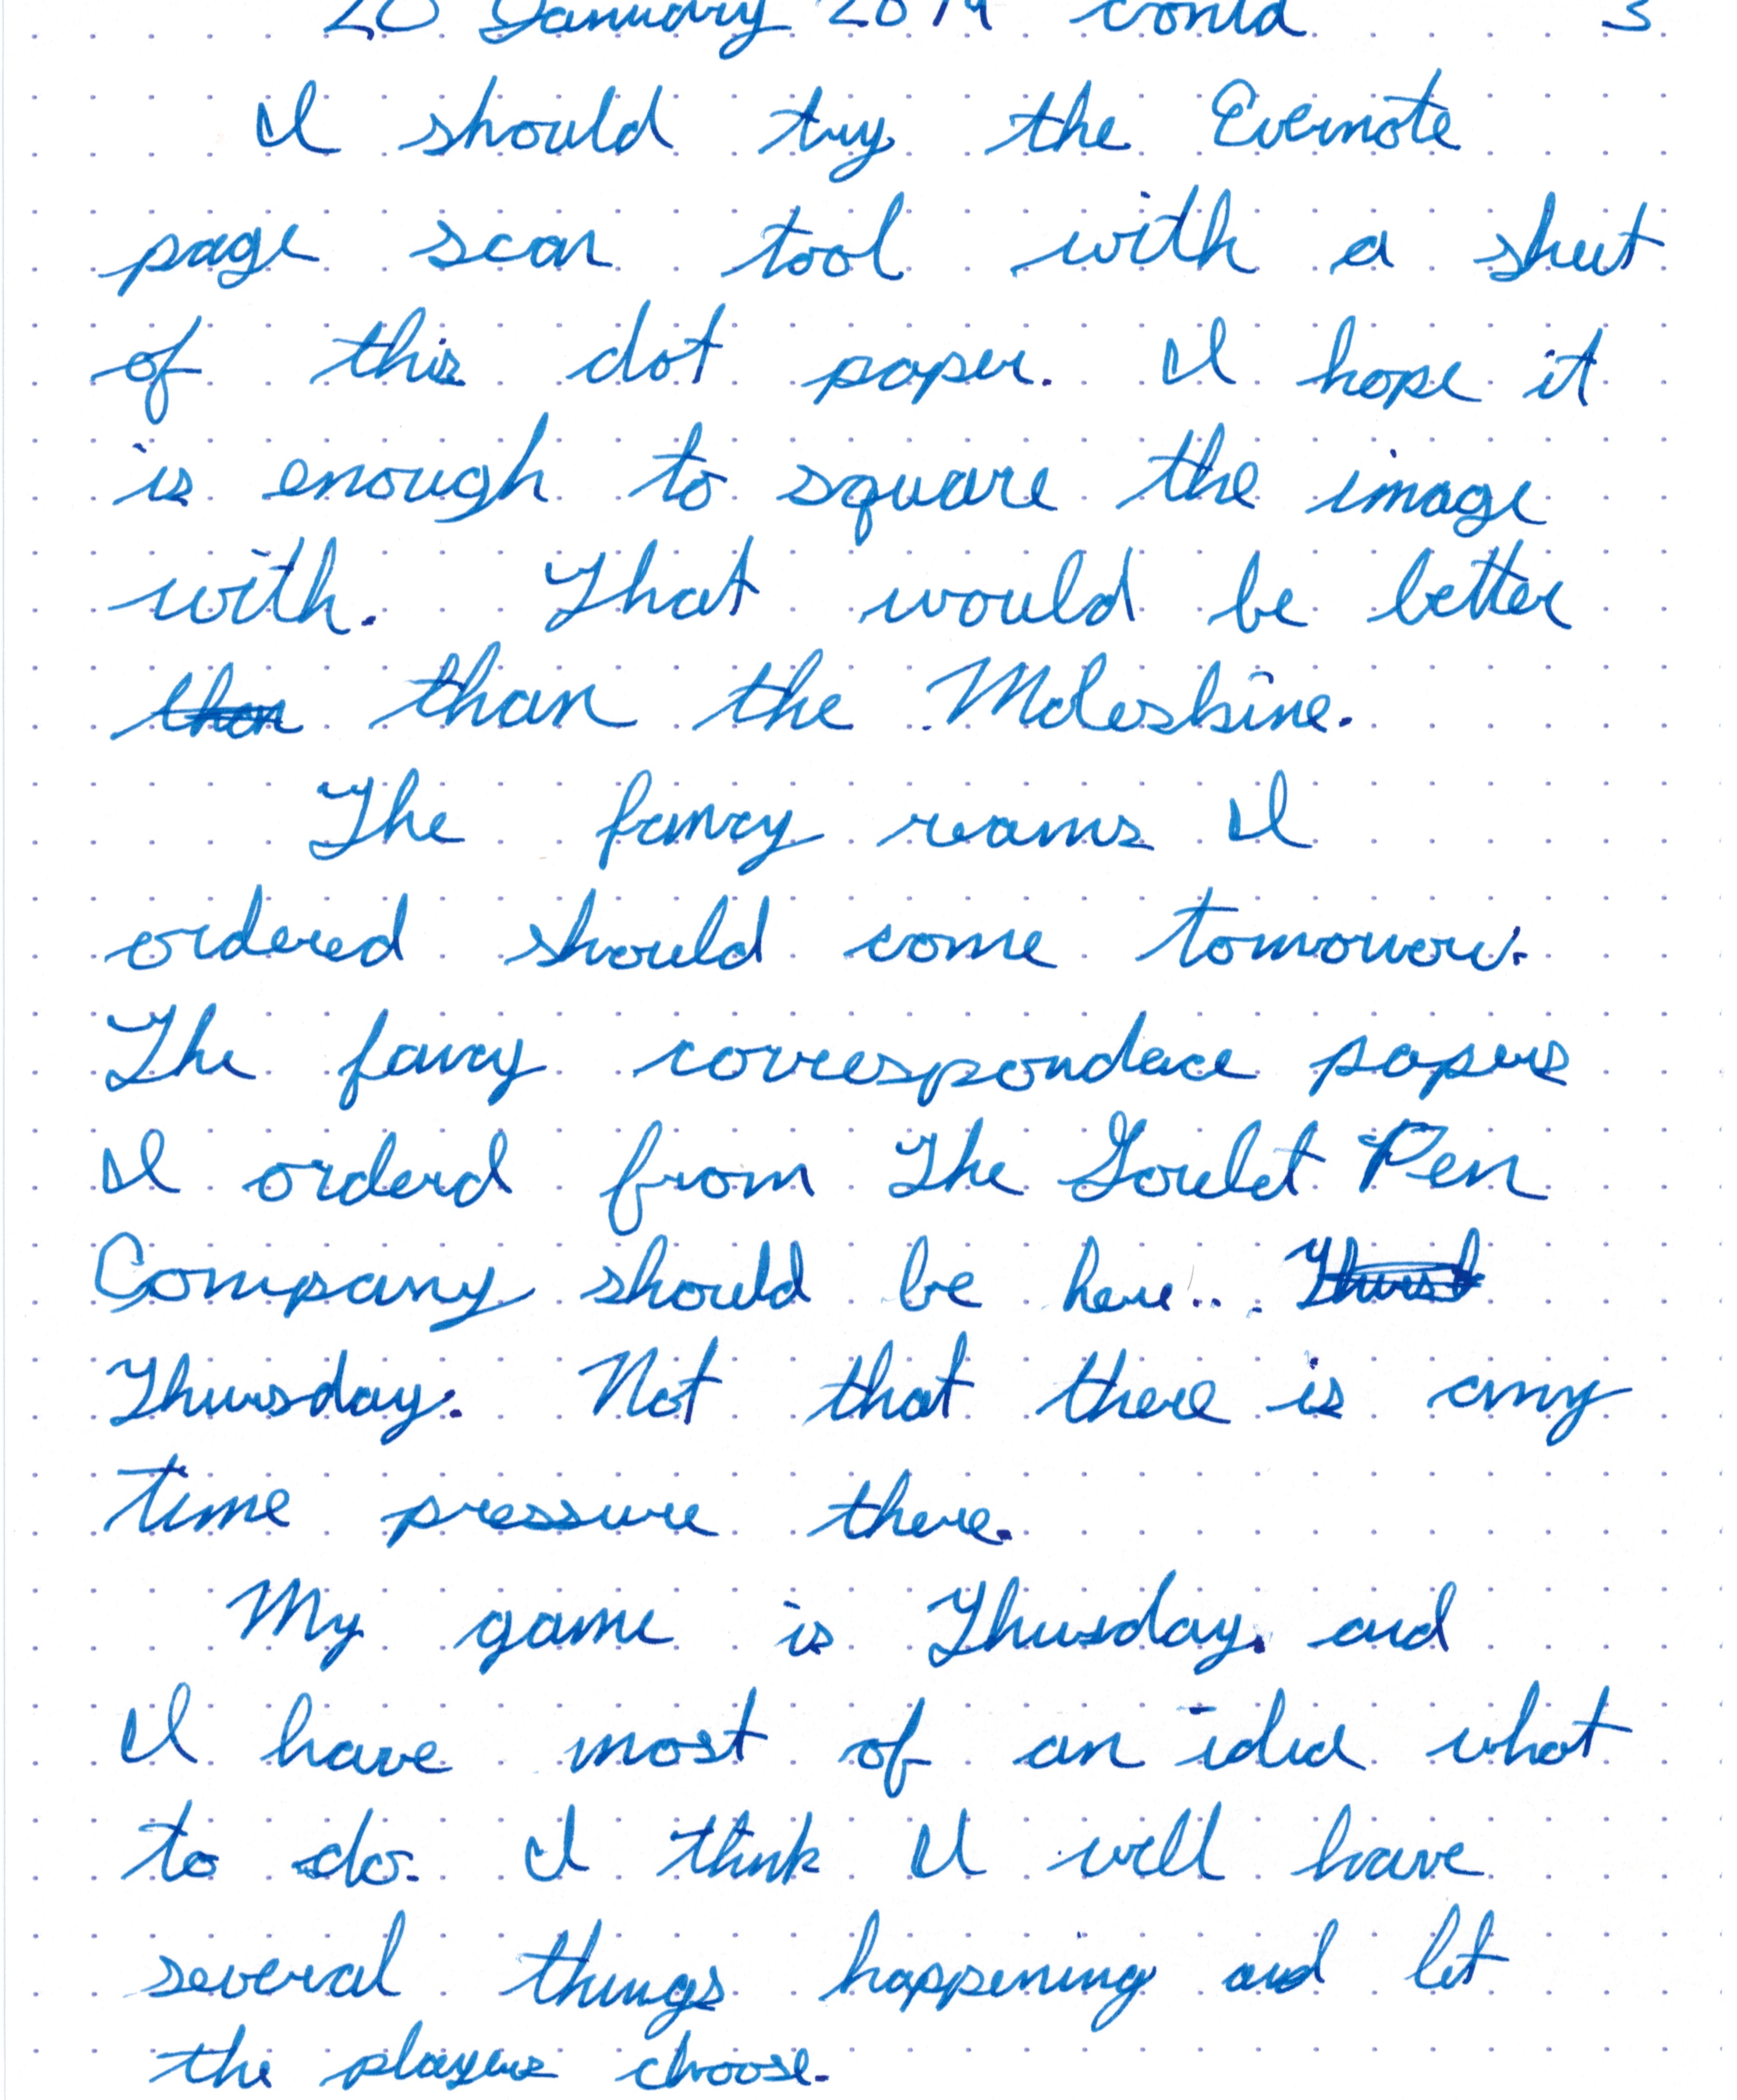 20 January 2014 cont'd 3
I should try the Evernote
page scan tool with a sheet
of this dot paper. I hope it
is enough to square the image
with. That would be better
than than the Moleskine.
The fancy reams I
ordered should come tomorrow.
The fancy correspondace papers
I orderd from The Goulet Pen
Company should be here... Thurs
Thursday. Not that there is any
time pressure there.
My game is Thursday. and
I have most of an idea what
to do. I think I will have
several things happening and let
the players choose.